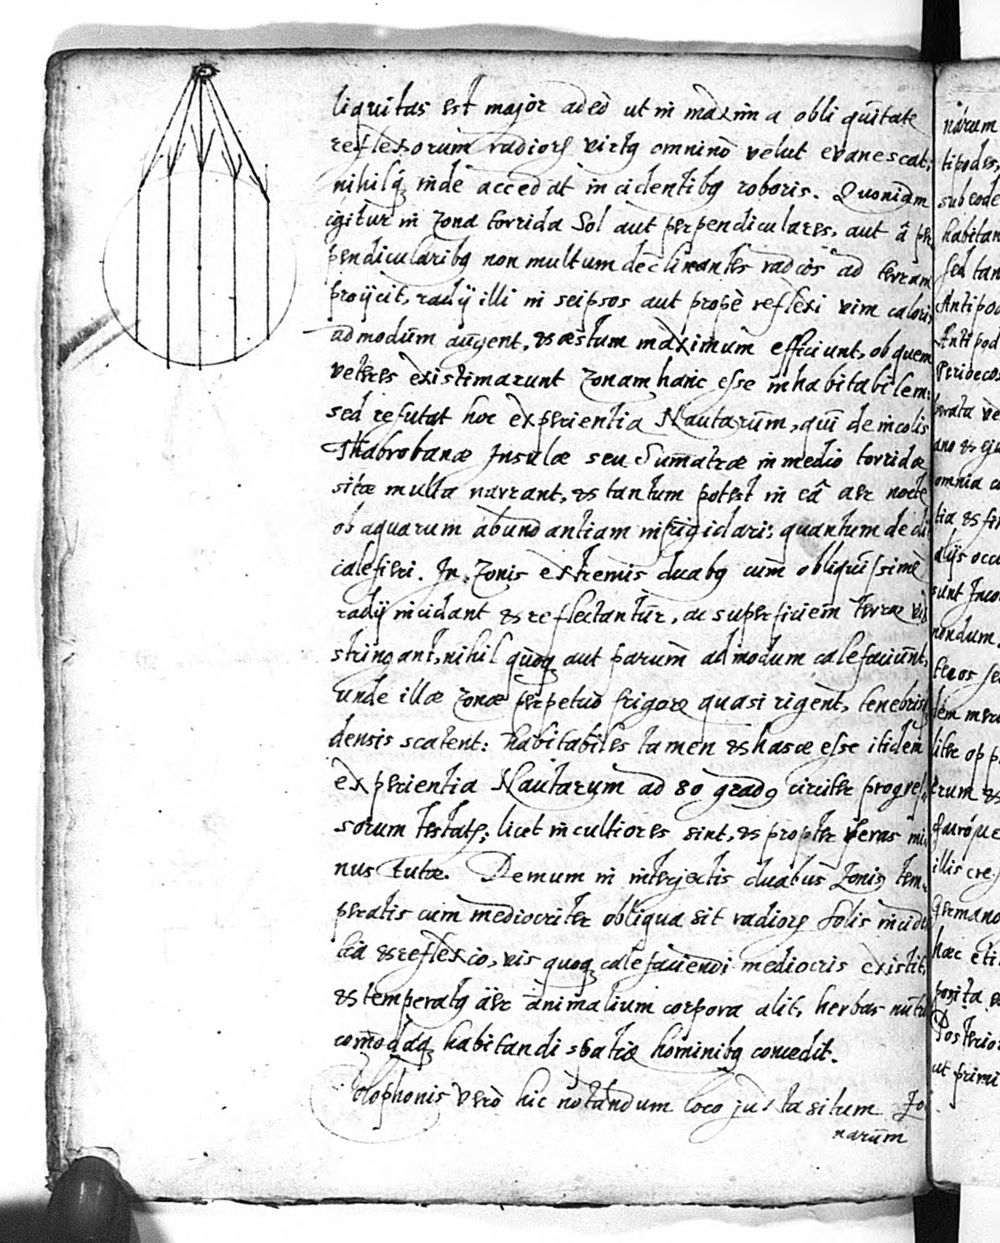 liquitas est major adeò ut in maxima obliquitate
reflexorum radiorũ virtq̃ omninò velut evanescat,
nihilq́ inde accedat incidentibq roboris. Quoniam
igitur in zona torrida Sol aut perpendiculares, aut â per
pendicularibq non multum declinantes radios ad terram
projicit, radij illi in seipsos aut propè reflexi vim caloris
admodũm augent, & æstum maximum efficiunt, ob quem
veteres existimarunt zonam hanc esse inhabitabilem:
sed refutat hoc experientia Nautarũm, qui de incolis
Thabrobanæ Insulæ seu Sumatræ in medio torridæ
sitæ multa narrant, & tantum potest in eâ aer nocte
ob aquarum abundantiam infrigidari, quantum de die
calefieri. In Zonis extremis duabq cum obliquissimè
radij incidant & reflectantur, ac superficiem terræ vix
stringant, nihil quoq aut parum admodum calefaciunt,
unde illæ zonæ perpetuò frigore quasi rigent, tenebris
densis scatent: habitabiles tamen & hasce esse itidem
experientia Nautarum ad 80 gradq circiter progres-
sorum testatr, licet incultiores sint, & propter feras mi-
nus tutæ. Demum in interjectis duabus Zonis tem-
peratis cum mediocriter obliqua sit radiorũ Solis inciden
tia & reflexio, vis quoq calefaciendi mediocris existit,
& temperatq aër animalium corpora alit, herbas nutrit
comodaq habitandi spatia hominibq concedit.
Holophonis verò hic notandum loco juxta situm Zo
narum
narum
tipodes,
sub eode
habitan
sed tan
Antipod
Antipod
Periœcos
perata ve
ano &
omnia
tia & fi
alijs occu
sunt Inco
nondum
dem meri
liter opp
erum &
illis
germano
hæc eti
posita
Posterior
ut primi